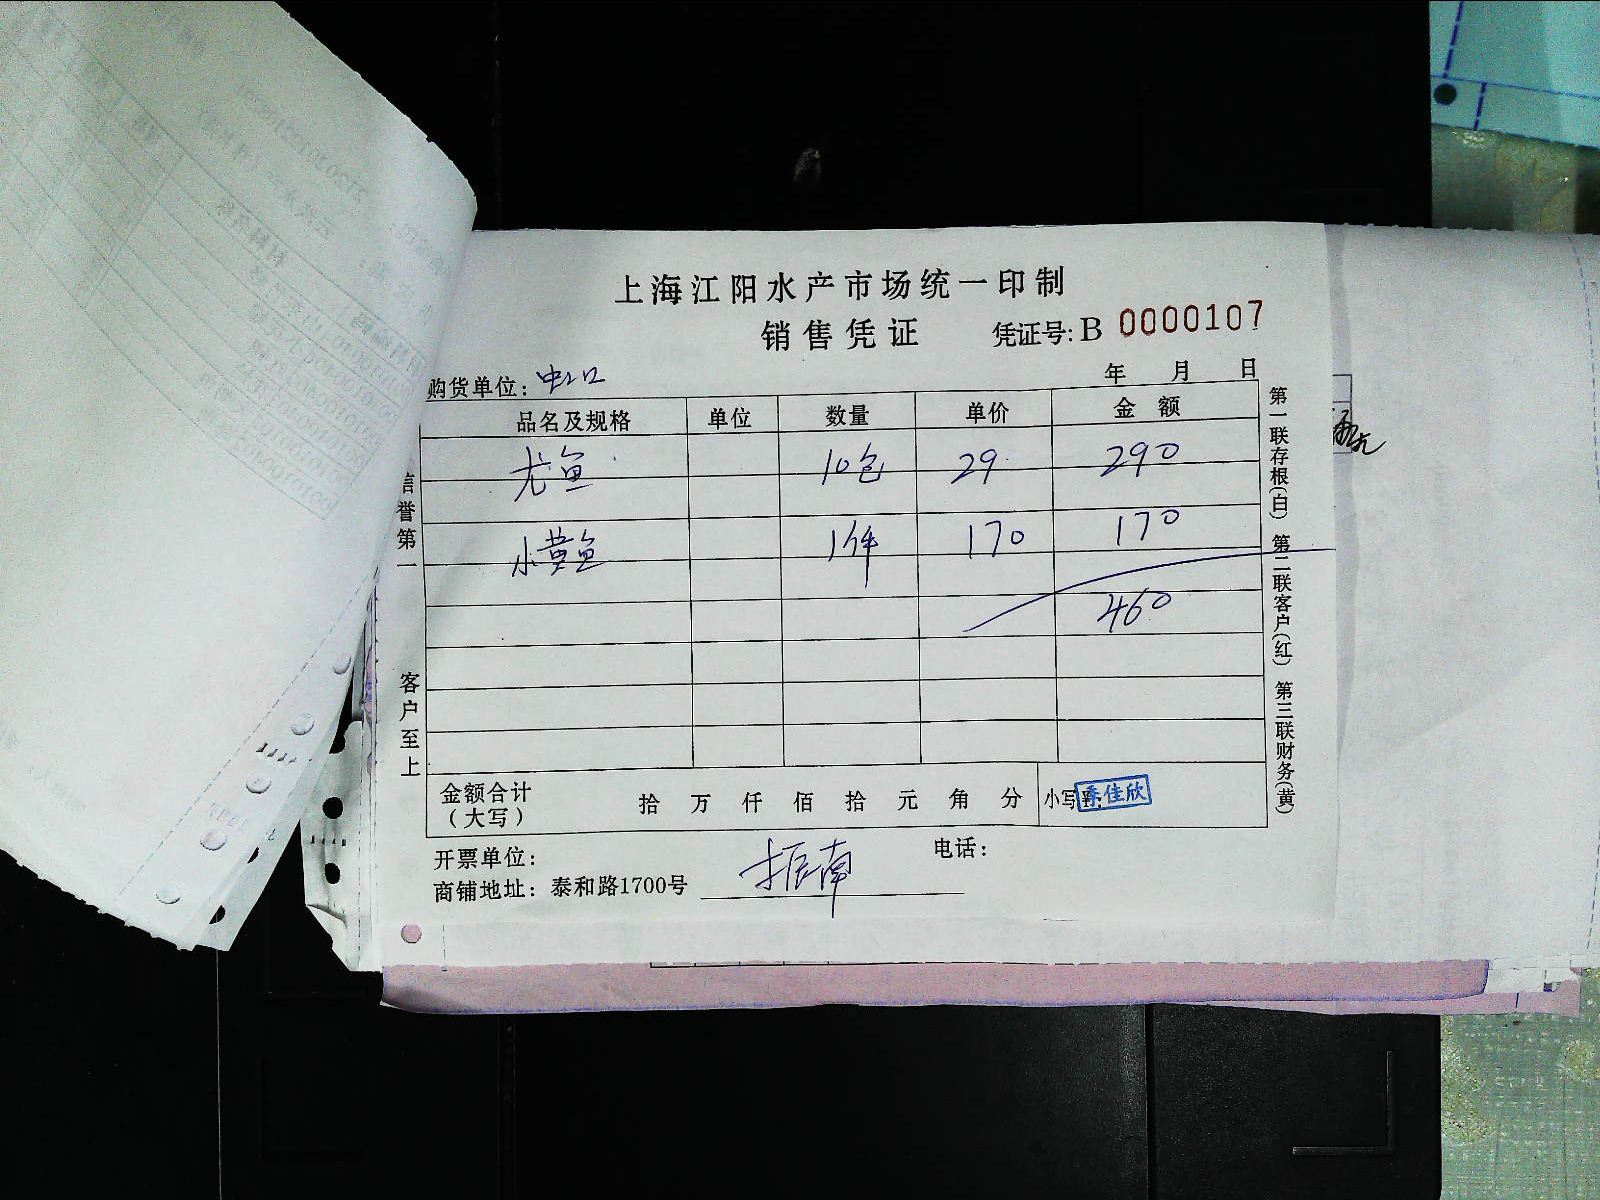 上海江阳水产市场统一印制
销售凭证 凭证号: B 0000107
购货单位: 虹口 年 月 日
品名及规格 单位 数量 单价 金额
尤鱼 10包 29 290
小黄鱼 1件 170 170
460
金额合计（大写） 拾 万 仟 佰 拾 元 角 分 小写
季佳欣
开票单位: 振南 电话:
商铺地址: 泰和路1700号
信誉第一 客户至上
第一联存根(白) 第二联客户(红) 第三联财务(黄)